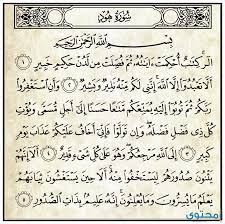 سُورَةُ هُودٍ
بِسْمِ اللَّهِ الرَّحْمَٰنِ الرَّحِيمِ
الٓر ۚ كِتَٰبٌ أُحْكِمَتْ ءَايَٰتُهُۥ ثُمَّ فُصِّلَتْ مِن لَّدُنْ حَكِيمٍ خَبِيرٍ ١
أَلَّا تَعْبُدُوٓا۟ إِلَّا ٱللَّهَ ۚ إِنَّنِى لَكُم مِّنْهُ نَذِيرٌ وَبَشِيرٌ ٢ وَأَنِ ٱسْتَغْفِرُوا۟
رَبَّكُمْ ثُمَّ تُوبُوٓا۟ إِلَيْهِ يُمَتِّعْكُم مَّتَٰعًا حَسَنًا إِلَىٰٓ أَجَلٍ مُّسَمًّى وَيُؤْتِ
كُلَّ ذِى فَضْلٍ فَضْلَهُۥ ۖ وَإِن تَوَلَّوْا۟ فَإِنِّىٓ أَخَافُ عَلَيْكُمْ عَذَابَ يَوْمٍ
كَبِيرٍ ٣ إِلَى ٱللَّهِ مَرْجِعُكُمْ ۖ وَهُوَ عَلَىٰ كُلِّ شَىْءٍ قَدِيرٌ ٤ أَلَآ إِنَّهُمْ
يَثْنُونَ صُدُورَهُمْ لِيَسْتَخْفُوا۟ مِنْهُ ۚ أَلَا حِينَ يَسْتَغْشُونَ ثِيَابَهُمْ
يَعْلَمُ مَا يُسِرُّونَ وَمَا يُعْلِنُونَ ۚ إِنَّهُۥ عَلِيمٌۢ بِذَاتِ ٱلصُّدُورِ ٥
محتوى